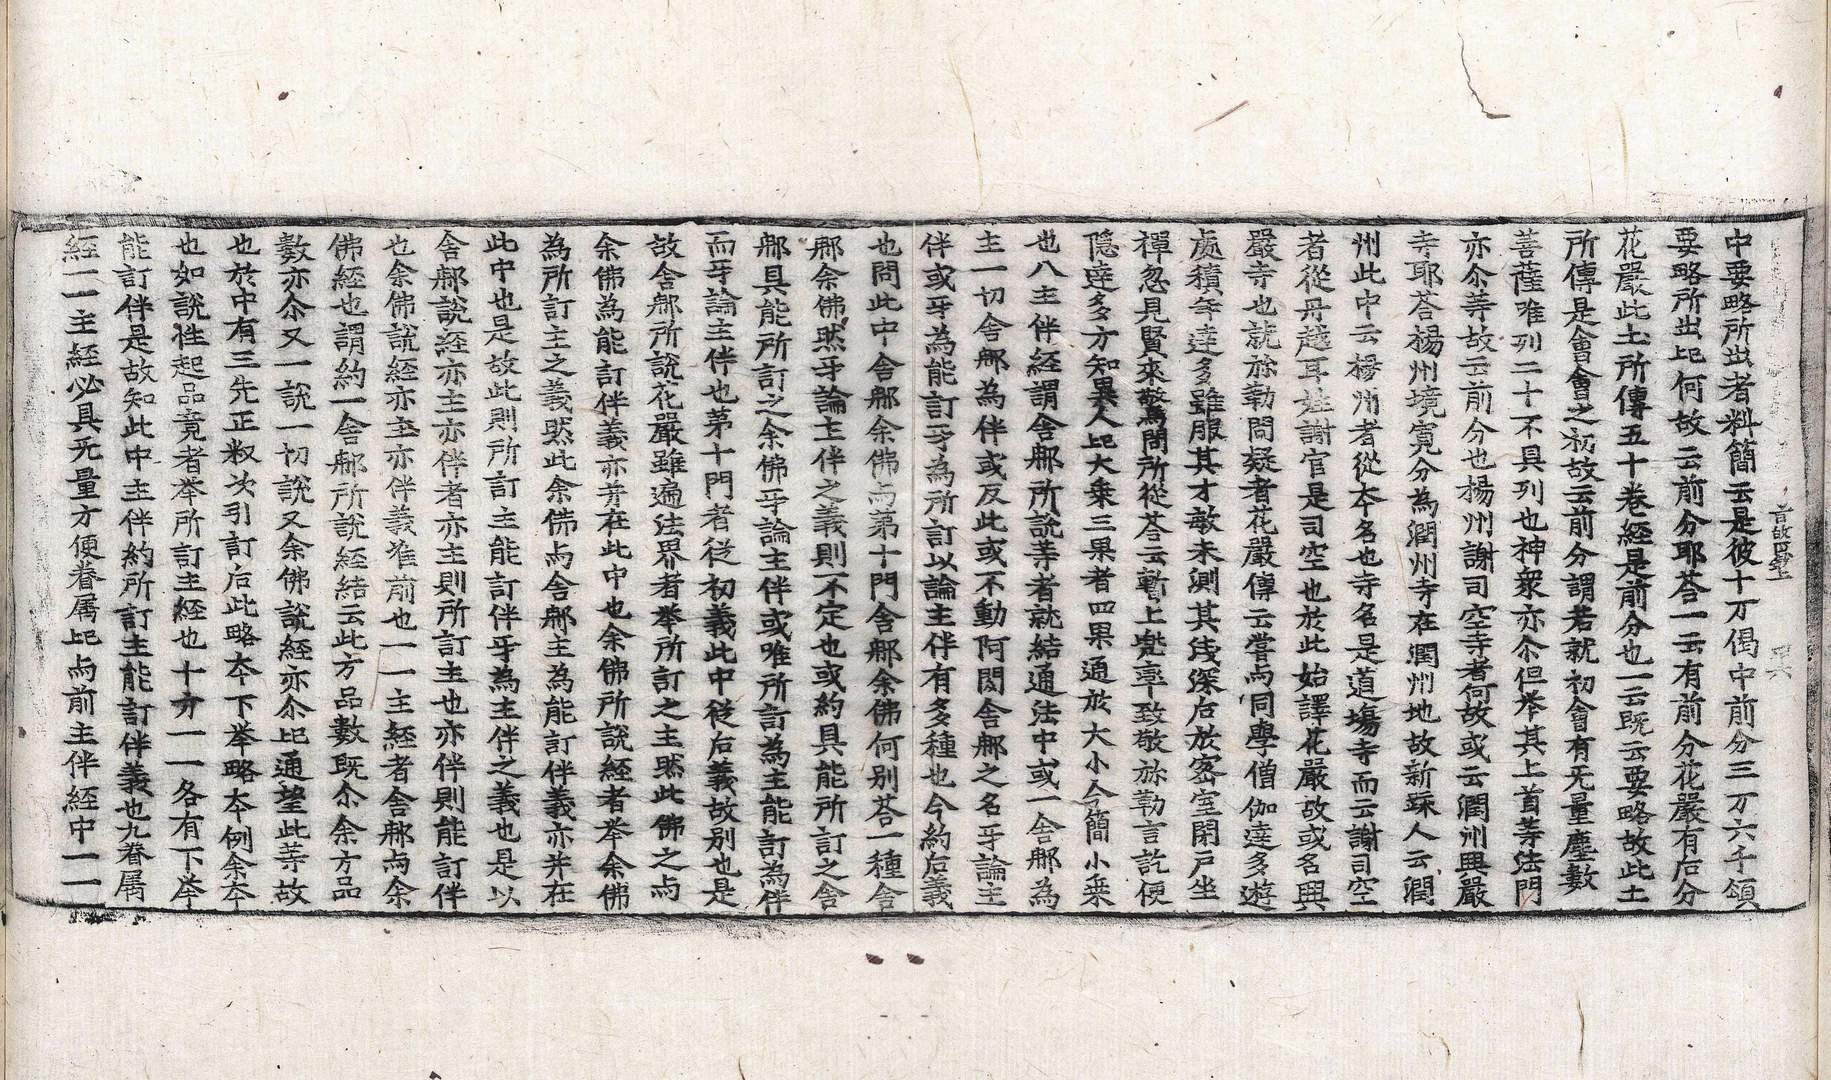 中要略所出者料簡云是彼十万偈中前分三万六千頌
要略所出也何故云前分耶荅一云有前分花嚴有后分
花嚴此土所傳五十卷經是前分也一云旣云要略故此土
所傳是會會之初故云前分謂若就初會有无量塵數
菩薩唯列二十不具列也神衆亦尒但举其上首等法門
亦尒等故云前分也楊州謝司空寺者何故或云潤州興嚴
寺耶荅楊州境寬分為潤州寺在潤州地故新踈人云潤
州此中云楊州者從夲名也寺名是道場寺而云謝司空
者從丹越耳姓謝官是司空也於此始譯花嚴故或名興
嚴寺也就弥勒問疑者花嚴傳云嘗与同學僧伽達多遊
處積年達多雖服其才敏未測其浅深后於密室閑戸坐
禪忽見賢來驚問所從荅云暫上兠率致敬弥勒言訖便
隐達多方知異人也大乗三果者四果通於大小今簡小乗
也八主伴經謂舎䣌所說等者就結通法中或一舎䣌為
主一切舎䣌為伴或反此或不動阿閦舎䣌之名互論主
伴或互為能訂互為所訂以論主伴有多種也今約后義
也問此中舎䣌余佛与第十門舎䣌余佛何别荅一種舎
䣌余佛㷊互論主伴之義則不定也或約具能所訂之舎
䣌具能所訂之余佛互論主伴或唯所訂為主能訂為伴
而互論主伴也第十門者従初義此中従后義故别也是
故舎䣌所說花嚴雖遍法界者举所訂之主㷊此佛之与
余佛為能訂伴義亦并在此中也余佛所說經者举余佛
為所訂主之義㷊此余佛与舎䣌主為能訂伴義亦并在
此中也是故此則所訂主能訂伴互為主伴之義也是以
舎䣌說經亦主亦伴者亦主則所訂主也亦伴則能訂伴
也余佛說經亦主亦伴義准前也一一主經者舎䣌与余
佛經也謂約一舎䣌所說經結云此方品數旣尒余方品
數亦尒又一說一切說又余佛說經亦尒也通望此等故
也於中有三先正叙次引訂后此略夲下举略夲例余夲
也如說性起品竟者举所訂主經也十方一一各有下举
能訂伴是故知此中主伴約所訂主能訂伴義也九眷屬
經一一主經必具无量方便眷属也与前主伴經中一一